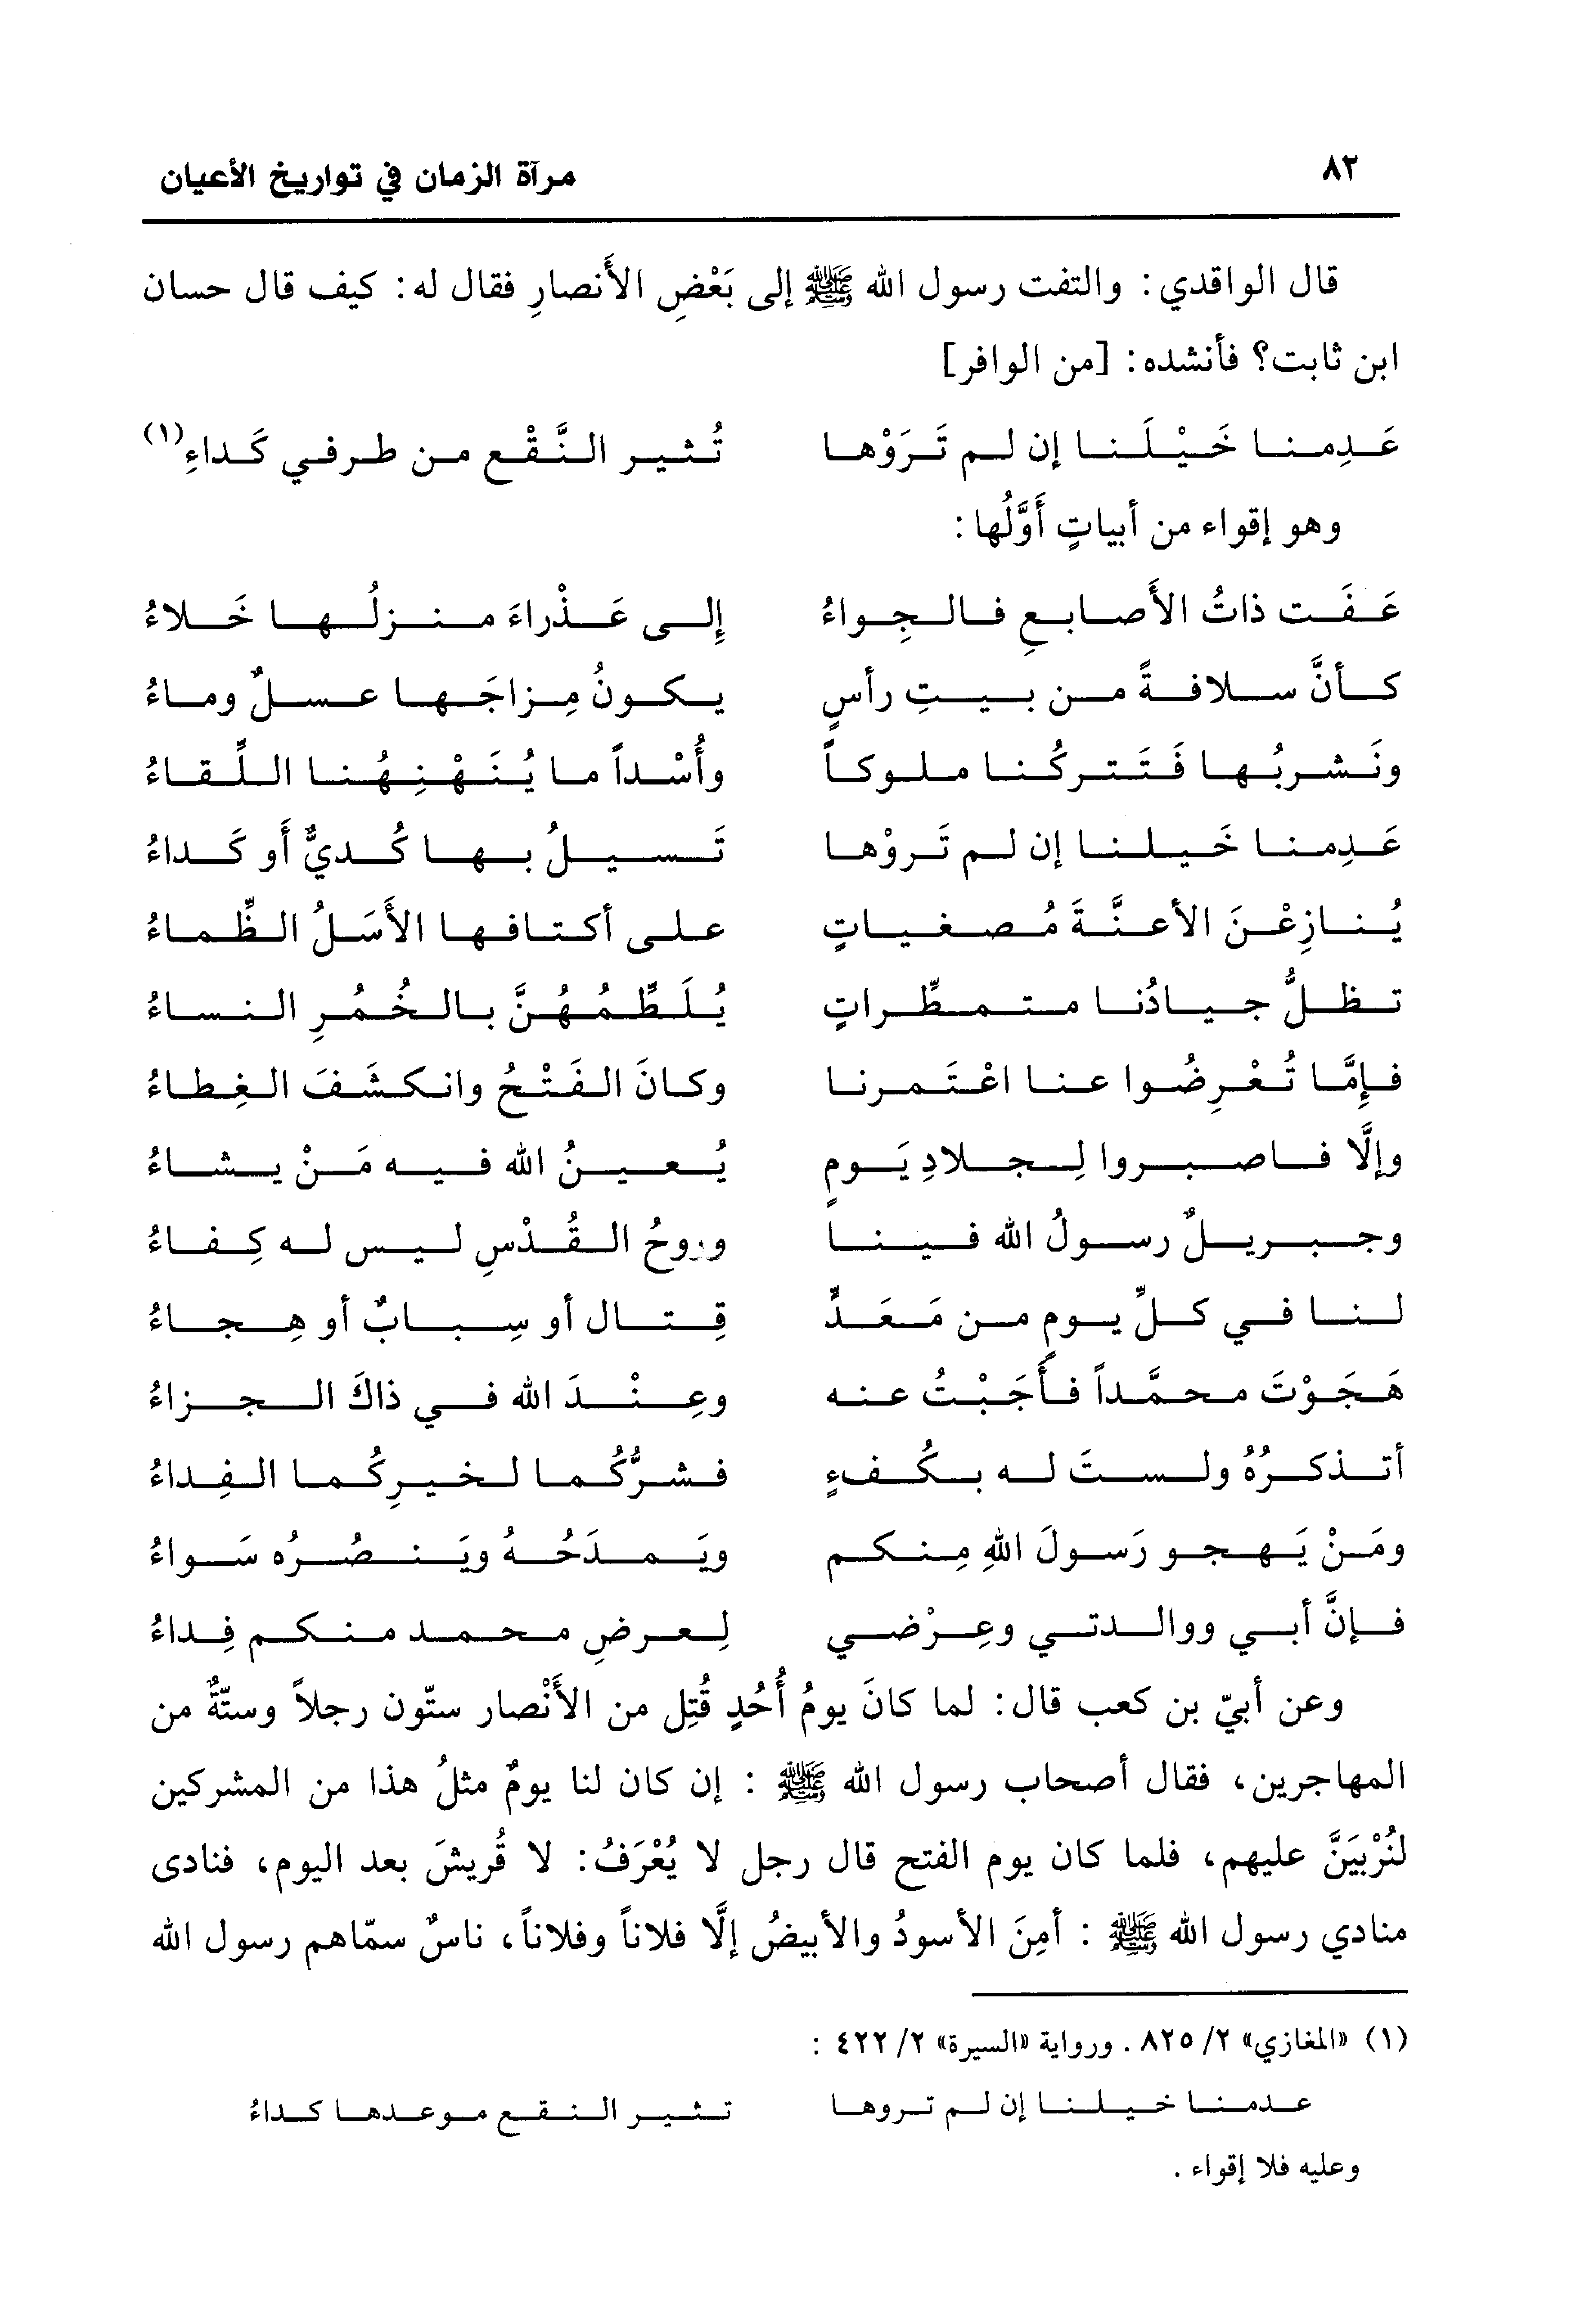 ٨٢ مرآة الزمان في تواريخ الأعيان
قال الواقدي: والتفت رسول الله ﷺ إلى بَعْضِ الأَنصارِ فقال له: كيف قال حسان
ابن ثابت؟ فأنشده: [من الوافر]
عَدِمنا خَيْلَنا إن لم تَرَوْها تُثير النَّقْع من طرفي كَداءِ(١)
وهو إقواء من أبياتٍ أَوَّلُها:
عَفَت ذاتُ الأَصابعِ فالجِواءُ إِلى عَذْراءَ منزلُها خَلاءُ
كأنَّ سلافةً من بيتِ رأسٍ يكونُ مِزاجَها عسلٌ وماءُ
ونَشربُها فَتَتركُنا ملوكاً وأُسْداً ما يُنَهْنِهُنا اللِّقاءُ
عَدِمنا خَيلنا إن لم تَروْها تَسيلُ بها كُديٌّ أَو كَداءُ
يُنازِعْنَ الأعنَّةَ مُصغياتٍ على أكتافها الأَسَلُ الظِّماءُ
تظلُّ جيادُنا متمطِّراتٍ يُلَطِّمُهُنَّ بالخُمُرِ النساءُ
فإِمَّا تُعْرِضُوا عنا اعْتَمرنا وكانَ الفَتْحُ وانكشَفَ الغِطاءُ
وإلَّا فاصبروا لِجلادِ يَومٍ يُعينُ الله فيه مَنْ يشاءُ
وجبريلٌ رسولُ الله فينا وروحُ القُدْسِ ليس له كِفاءُ
لنا في كلِّ يومٍ من مَعَدٍّ قِتال أو سِبابٌ أو هِجاءُ
هَجَوْتَ محمَّداً فأَجَبْتُ عنه وعِنْدَ الله في ذاكَ الجزاءُ
أتذكرُهُ ولستَ له بكُفءٍ فشرُّكُما لخيرِكُما الفِداءُ
ومَنْ يَهجو رَسولَ اللهِ مِنكم ويَمدَحُهُ ويَنصُرُه سَواءُ
فإنَّ أبي ووالدتي وعِرْضي لِعرضِ محمد منكم فِداءُ
وعن أبيّ بن كعب قال: لما كانَ يومُ أُحُدٍ قُتِل من الأَنْصار ستّون رجلاً وستّةٌ من
المهاجرين، فقال أصحاب رسول الله ﷺ : إن كان لنا يومٌ مثلُ هذا من المشركين
لنُرْبيَنَّ عليهم، فلما كان يوم الفتح قال رجل لا يُعْرَفُ: لا قُريشَ بعد اليوم، فنادى
منادي رسول الله ﷺ : أمِنَ الأسودُ والأبيضُ إلَّا فلاناً وفلاناً، ناسٌ سمّاهم رسول الله
(١) «المغازي» ٢/ ٨٢٥. ورواية «السيرة» ٢/ ٤٢٢ :
عدمنا خيلنا إن لم تروها تثير النقع موعدها كداءُ
وعليه فلا إقواء.